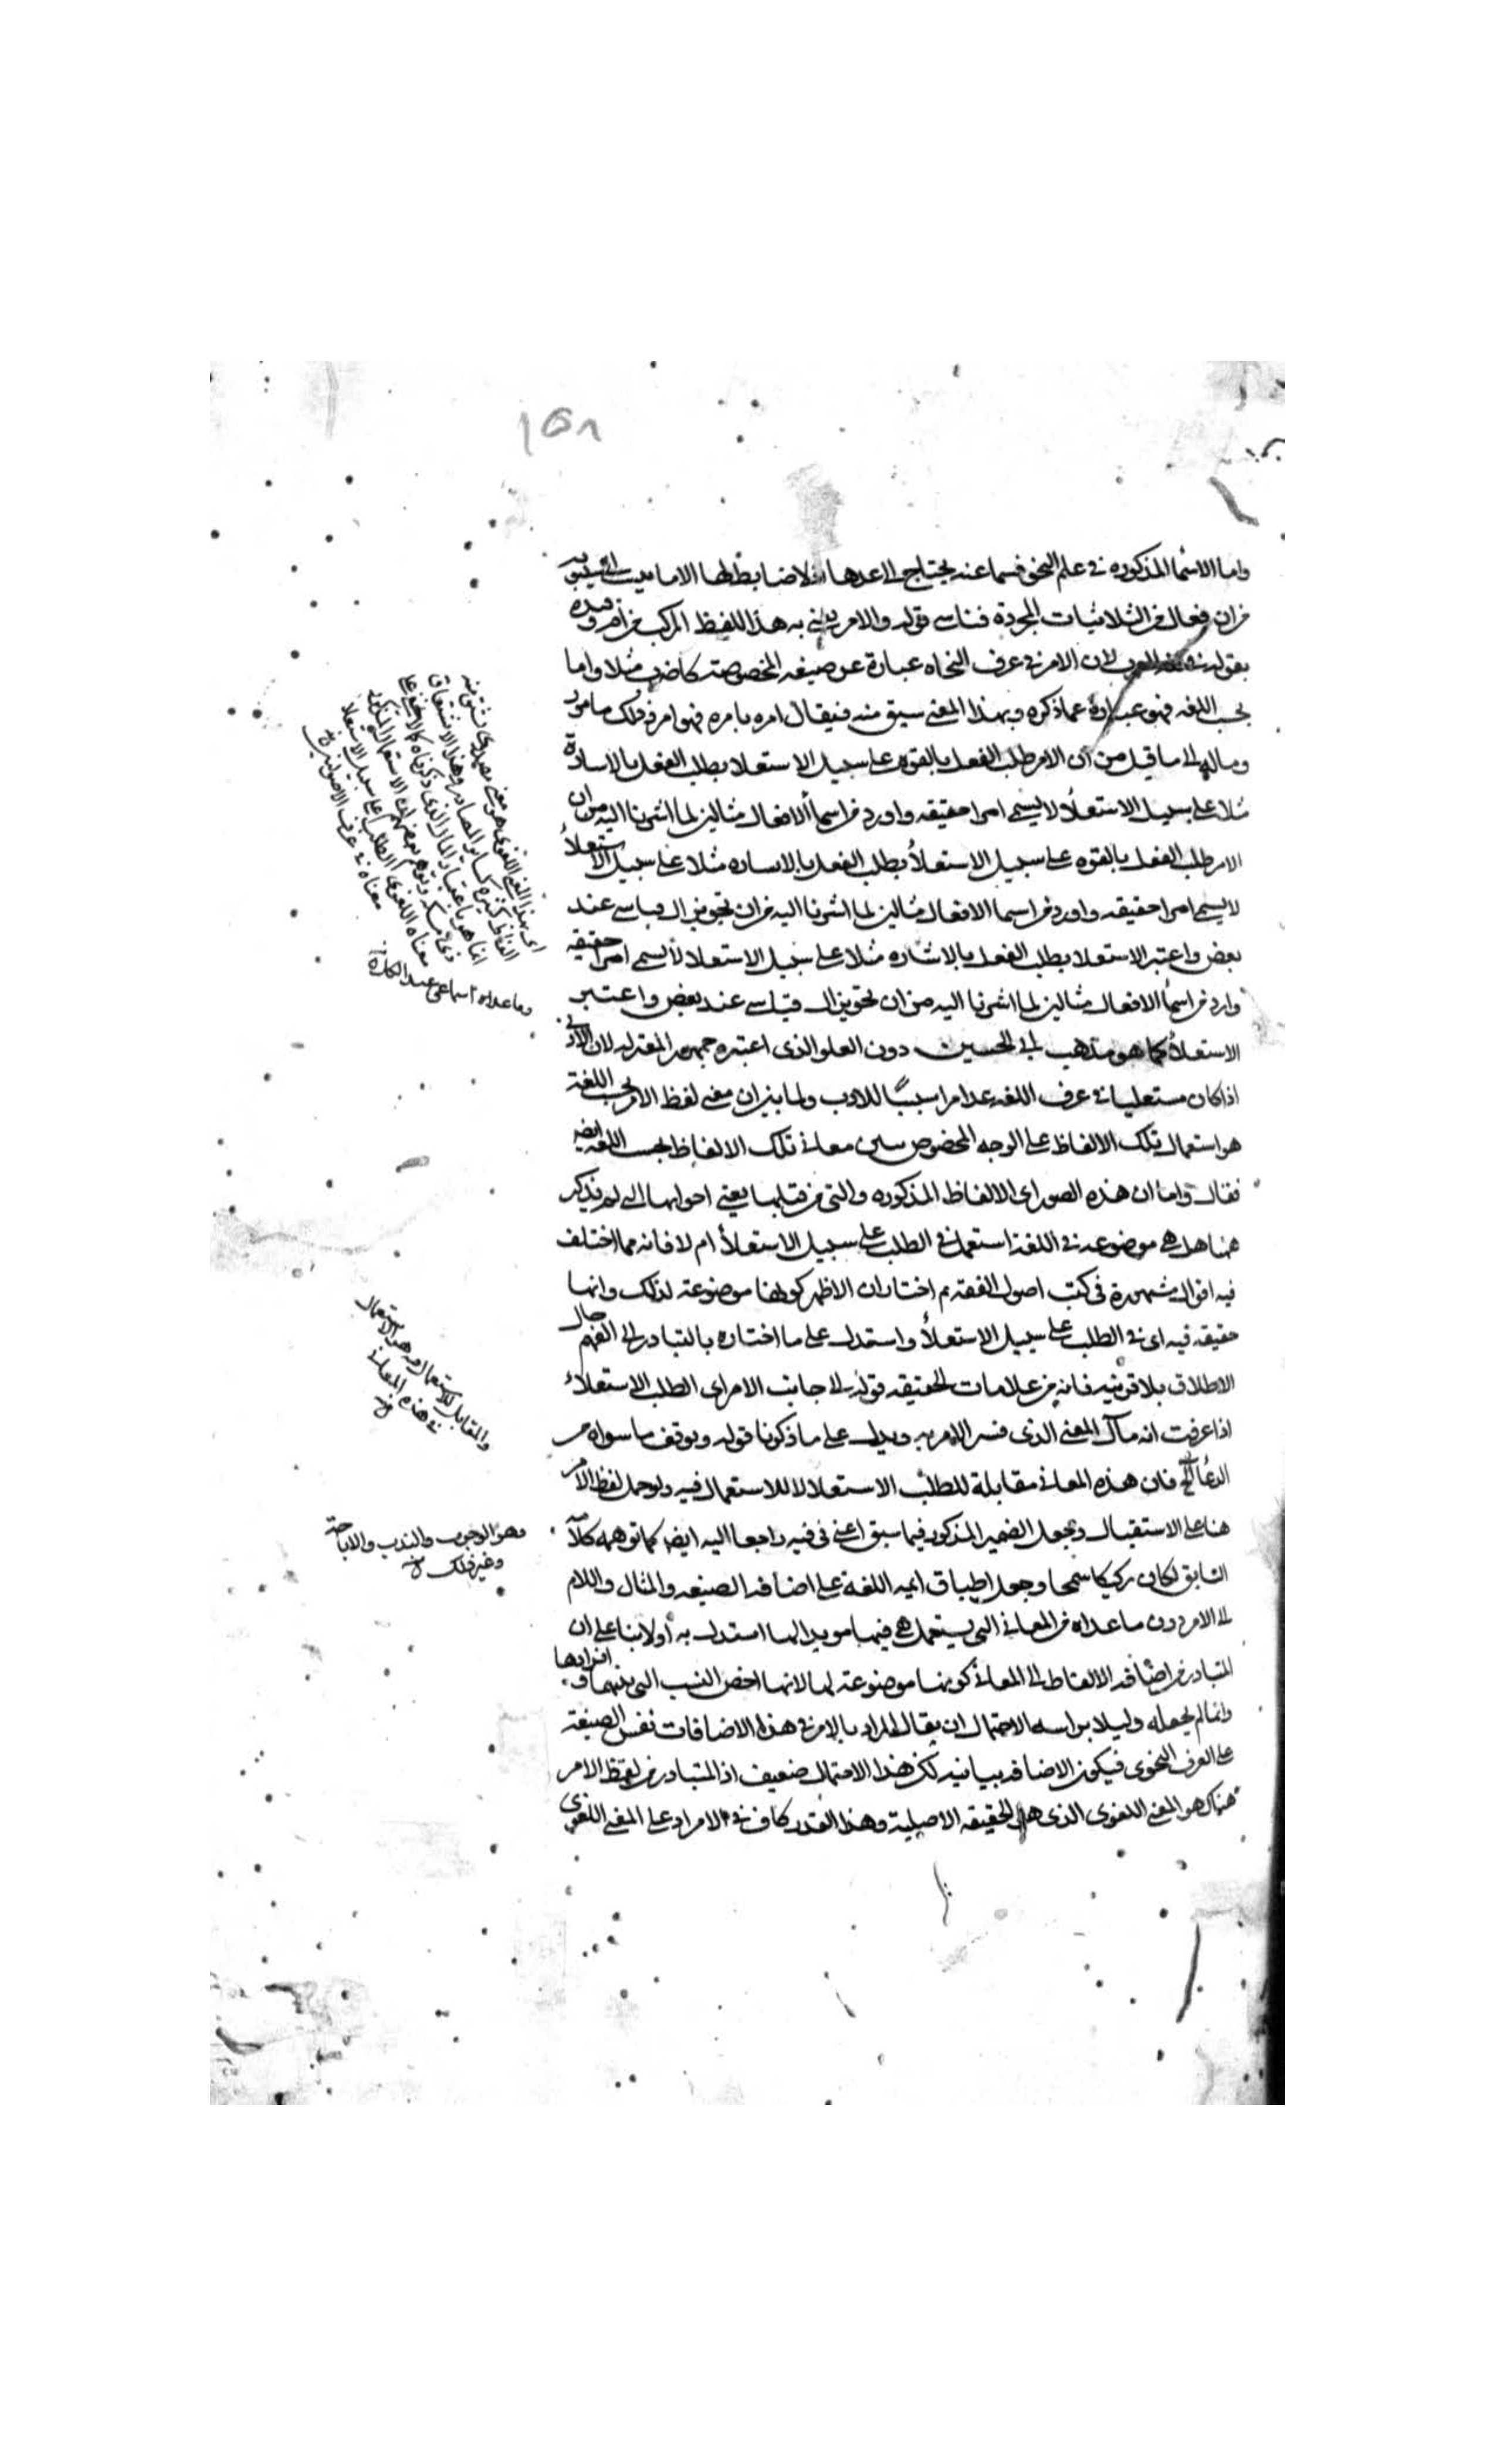 ١٥٨
واما الاسما المذكوره في علم النحو فسماعنه يحتاج الى عدها اذ لا ضابط لها الا ما ينسب الى سيبويه
من ان فعال من الثلاثيات المجردة قياسي قوله والامر يعني به هذا اللفظ المركب من ا م ر وقيده
بقوله لان الامر في عرف النحاه عبارة عن صيغه المخصوصة كاضرب مثلا واما
بحسب اللغه فهو عبارة عما ذكره وبهذا المعنى يشتق منه فيقال امره يامره فهو امر وذلك مامور
وماله الى ما قيل من ان الامر طلب الفعل بالقول على سبيل الاستعلا بطلب الفعل بالاشارة
مثلا على سبيل الاستعلاء لا يسمى امرا حقيقه واورد من اسما الافعال مثالين لما اشرنا اليه من ان
الامر طلب الفعل بالقوه على سبيل الاستعلاء بطلب الفعل بالاساره مثلا على سبيل الاستعلاء
لا يسمى امرا حقيقه واورد من اسما الافعال مثالين لما اشرنا اليه من ان تجويز القياسى عند
بعض واعتبر الاستعلا بطلب الفعل بالاشاره مثلا على سبيل الاستعلا لا يسمى امرا حقيقه
وارد من اسما الافعال مثالين لما اشرنا اليه من ان تجويز القياسى عند بعض واعتبر
الاستعلاء كما هو مذهب ابي الحسين دون العلو الذى اعتبره جمهور المعتزله لان الادنى
اذا كان مستعليا في عرف اللغه عد امرا سببًا للادب ولما بين ان معنى لفظ الامر بحسب اللغة
هو استعمال تلك الالفاظ على الوجه المخصوص بين معاني تلك الالفاظ بحسب اللغه ايضا
فقال واما ان هذه الصور اى الالفاظ المذكوره والتي من قبلها يعني اخواتها التي لم يذكر
ههنا هل هي موضوعه في اللغة استعملت في الطلب على سبيل الاستعلاء ام لا فانه مما اختلف
فيه اقوال مشهورة في كتب اصول الفقه ثم اختار ان الاظهر كونها موضوعة لذلك وانها
حقيقه فيه اى في الطلب على سبيل الاستعلاء واستدل على ما اختاره بالتبادر الى الفهم حال
الاطلاق بلا قرينه فانه من علامات الحقيقه قوله الى جانب الامر اى الطلب الاستعلاء
اذا عرفت انه مآل المعنى الذى فسر الامر به ويدل على ما ذكرنا قوله وتوقف ما سواه من
الدعاء الخ فان هذه المعاني مقابلة للطلب الاستعلا لا للاستعمال فيه ولو حمل لفظ الامر
هنا على الاستقبال ويجعل الضمير المذكور فيما سبق اعني في فيه راجعا اليه ايضا كما توهمه كلامه
السابق لكان ركيكا سمجا وجعل اطباق ايمه اللغة على اضافه الصيغه والمثال واللام
الى الامر دون ما عداه من المعاني التي يستعمل هي فيها مويدا لما استدل به اولا بناء على ان
المتبادر من اضافه الالفاظ الى المعاني كونها موضوعة لها لانها اخص النسب التي بينهما و افرادها
وانما لم يجعله دليلا براسه لاحتمال ان يقال المراد بالامر في هذه الاضافات نفس الصيغة
على العرف النحوى فيكون الاضافه بيانيه لكن هذا الاحتمال ضعيف اذ المتبادر من لفظ الامر
هناك هو المعنى اللغوى الذى هو الحقيقه الاصيلية وهذا القدر كاف في الامراد على المعنى اللغوى
اى بهذا المعنى اللغوى هو معنى مصدرى يشتق منه
الفاظ كثيره كساير المصادر وهذا الاشتقاق
وما عداه اسماعى عند الكل
والمقابل للاستعمال فيه هو الاستعمال
في هذه المعاني
وهو الوجوب والندب والاباحة
وغير ذلك منه